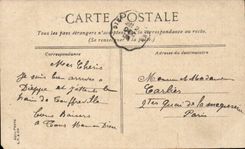 CARTE POSTALE
Tous les pays étrangers n'acceptent pas la correspondance au recto.
(Se renseigner à la poste).
Correspondance
Adresse du destinataire
Mes Chéris
Je suis bien arrivée à
Dieppe et j'attends le
train de
Bons Baisers
à Tous
Monsieur et Madame
Tarlier
quai de la mégisserie
Paris